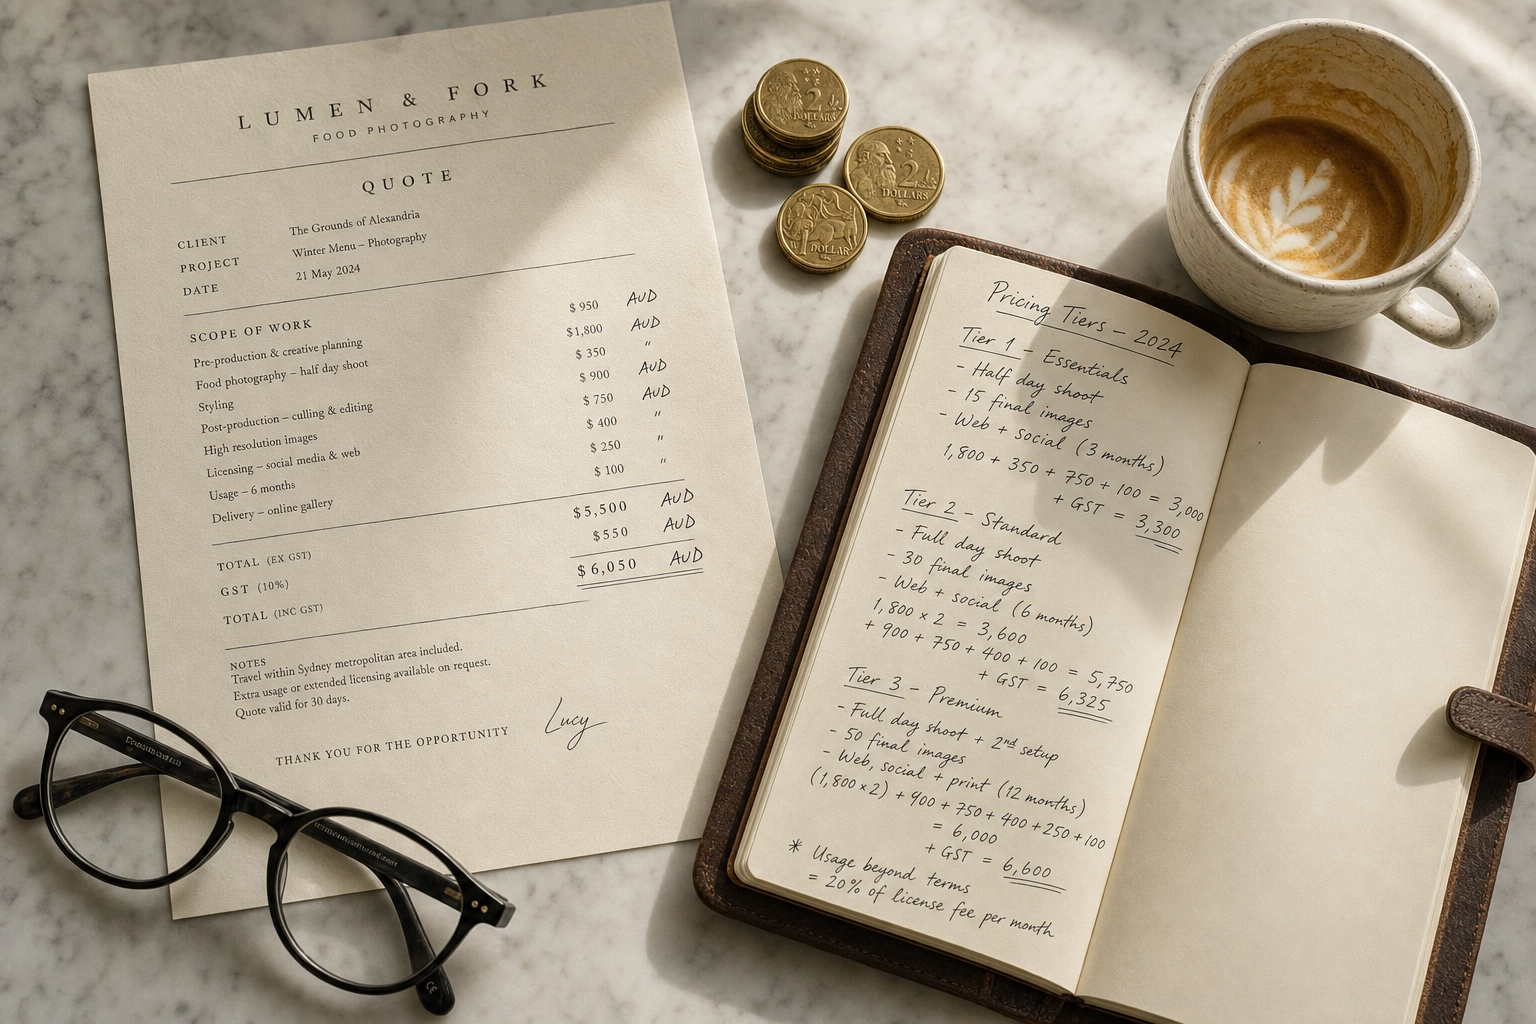 LUMEN & FORK
FOOD PHOTOGRAPHY
QUOTE
CLIENT The Grounds of Alexandria
PROJECT Winter Menu – Photography
DATE 21 May 2024
SCOPE OF WORK
Pre-production & creative planning $ 950 AUD
Food photography – half day shoot $1,800 AUD
Styling $ 350 "
Post-production – culling & editing $ 900 AUD
High resolution images $ 750 AUD
Licensing – social media & web $ 400 "
Usage – 6 months $ 250 "
Delivery – online gallery $ 100 "
TOTAL (EX GST) $5,500 AUD
GST (10%) $550 AUD
TOTAL (INC GST) $6,050 AUD
NOTES
Travel within Sydney metropolitan area included.
Extra usage or extended licensing available on request.
Quote valid for 30 days.
THANK YOU FOR THE OPPORTUNITY Lucy
2
DOLLARS
2
DOLLARS
DOLLAR
Pricing Tiers – 2024
Tier 1 – Essentials
- Half day shoot
- 15 final images
- Web + social (3 months)
1,800 + 350 + 750 + 100 = 3,000
+ GST = 3,300
Tier 2 – Standard
- Full day shoot
- 30 final images
- Web + social (6 months)
1,800 x 2 = 3,600
+ 900 + 750 + 400 + 100 = 5,750
+ GST = 6,325
Tier 3 – Premium
- Full day shoot + 2nd setup
- 50 final images
- Web, social + print (12 months)
(1,800 x 2) + 900 + 750 + 400 + 250 + 100
= 6,000
+ GST = 6,600
* Usage beyond terms
= 20% of license fee per month